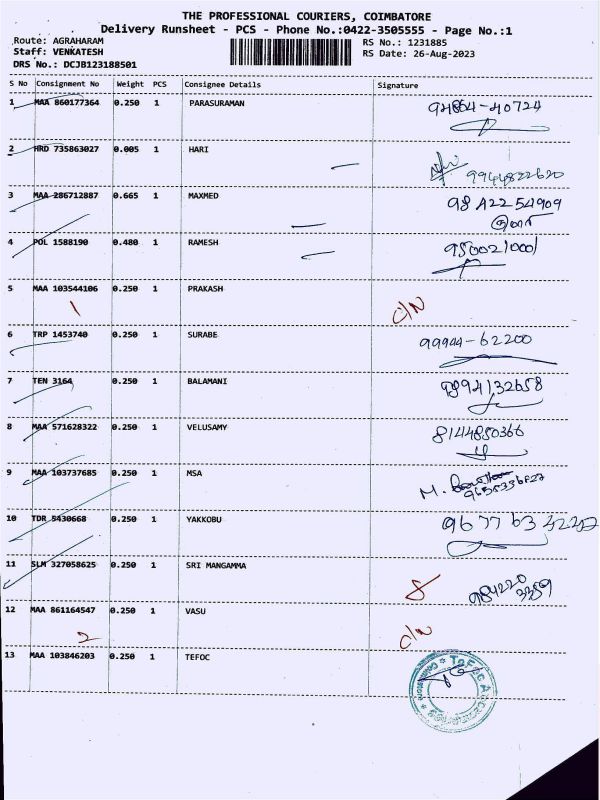 THE PROFESSIONAL COURIERS, COIMBATORE
Delivery Runsheet - PCS - Phone No.:0422-3505555 - Page No.:1
Route: AGRAHARAM RS No.: 1231885
Staff: VENKATESH RS Date: 26-Aug-2023
DRS No.: DCJB123188501
S No Consignment No Weight PCS Consignee Details Signature
1 MAA 860177364 0.250 1 PARASURAMAN 94864-40724
2 HRD 735863027 0.005 1 HARI 9944822620
3 MAA 286712887 0.665 1 MAXMED 98422 54909
4 POL 1588190 0.480 1 RAMESH 9500210001
5 MAA 103544106 0.250 1 PRAKASH C/N
1
6 TRP 1453740 0.250 1 SURABE 99944-62200
7 TEN 3164 0.250 1 BALAMANI 9894132658
8 MAA 571628322 0.250 1 VELUSAMY 8144850366
9 MAA 103737685 0.250 1 MSA M.
10 TDR 5430668 0.250 1 YAKKOBU
11 SLM 327058625 0.250 1 SRI MANGAMMA 8 984220
3359
12 MAA 861164547 0.250 1 VASU C/N
2
13 MAA 103846203 0.250 1 TEFOC